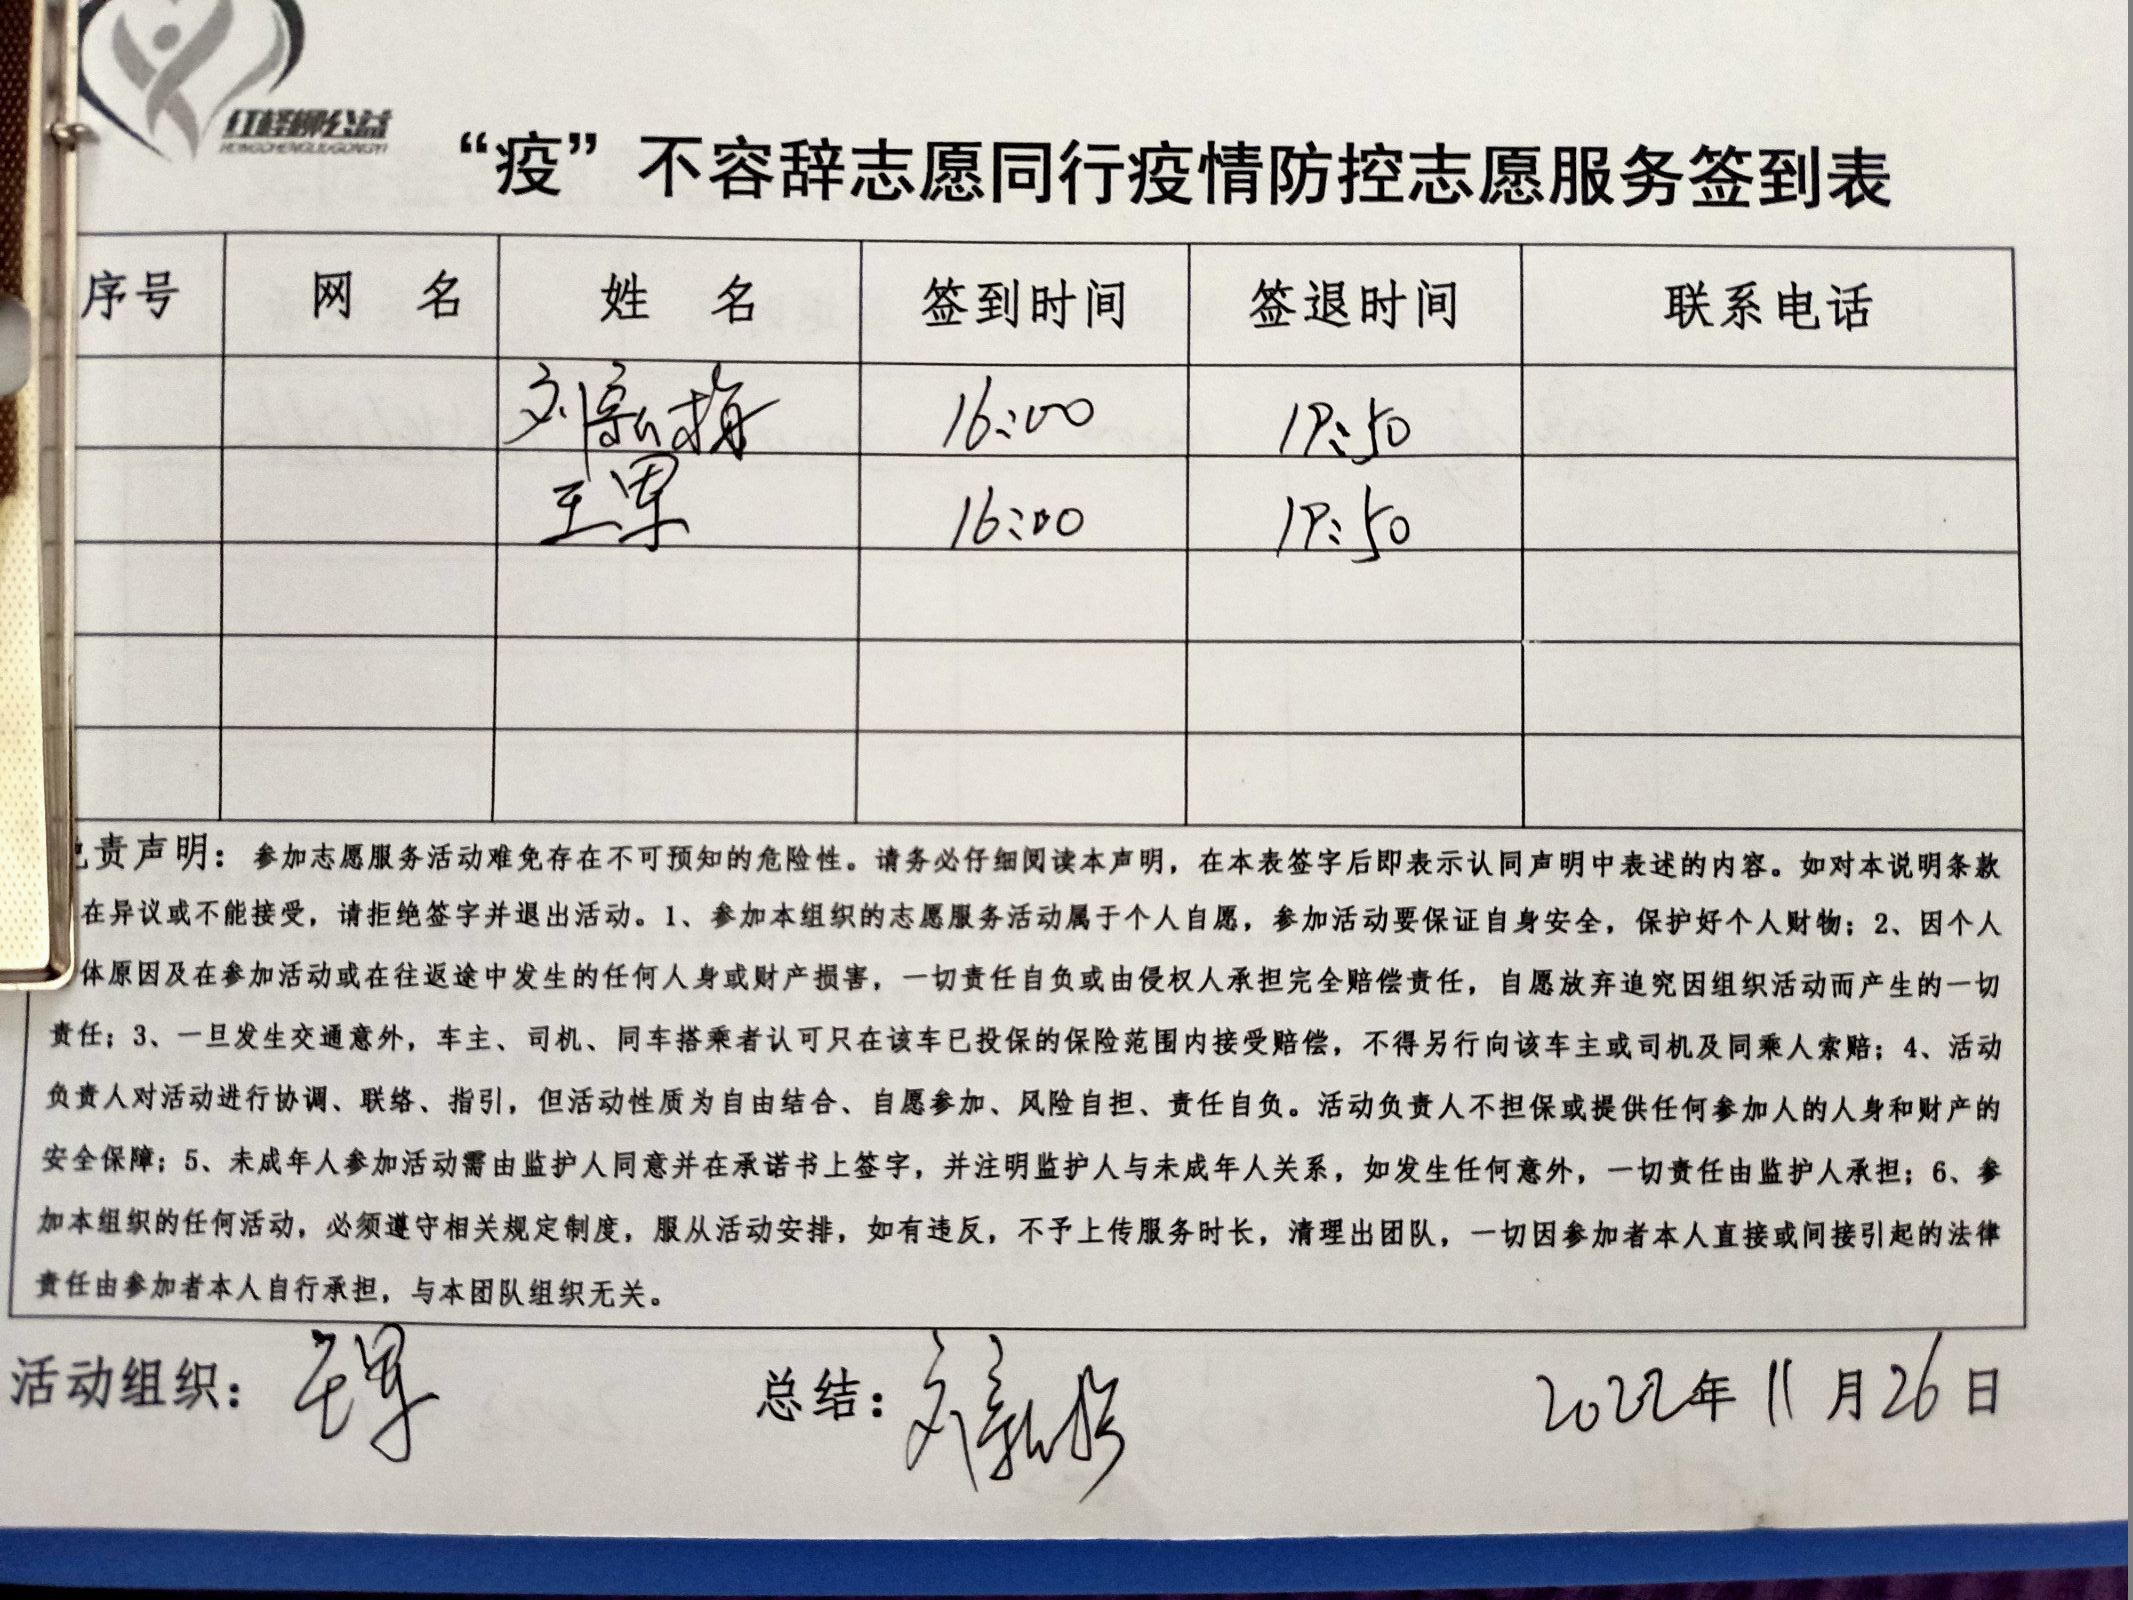 红柽柳公益
HONGCHENGLIUGONGYI
“疫”不容辞志愿同行疫情防控志愿服务签到表
序号 网 名 姓 名 签到时间 签退时间 联系电话
刘 梅 16:00 17:50
王军 16:00 17:50
责声明：参加志愿服务活动难免存在不可预知的危险性。请务必仔细阅读本声明，在本表签字后即表示认同声明中表述的内容。如对本说明条款
在异议或不能接受，请拒绝签字并退出活动。1、参加本组织的志愿服务活动属于个人自愿，参加活动要保证自身安全，保护好个人财物；2、因个人
体原因及在参加活动或在往返途中发生的任何人身或财产损害，一切责任自负或由侵权人承担完全赔偿责任，自愿放弃追究因组织活动而产生的一切
责任；3、一旦发生交通意外，车主、司机、同车搭乘者认可只在该车已投保的保险范围内接受赔偿，不得另行向该车主或司机及同乘人索赔；4、活动
负责人对活动进行协调、联络、指引，但活动性质为自由结合、自愿参加、风险自担、责任自负。活动负责人不担保或提供任何参加人的人身和财产的
安全保障；5、未成年人参加活动需由监护人同意并在承诺书上签字，并注明监护人与未成年人关系，如发生任何意外，一切责任由监护人承担；6、参
加本组织的任何活动，必须遵守相关规定制度，服从活动安排，如有违反，不予上传服务时长，清理出团队，一切因参加者本人直接或间接引起的法律
责任由参加者本人自行承担，与本团队组织无关。
活动组织：王军 总结：刘 梅 2022年11月26日